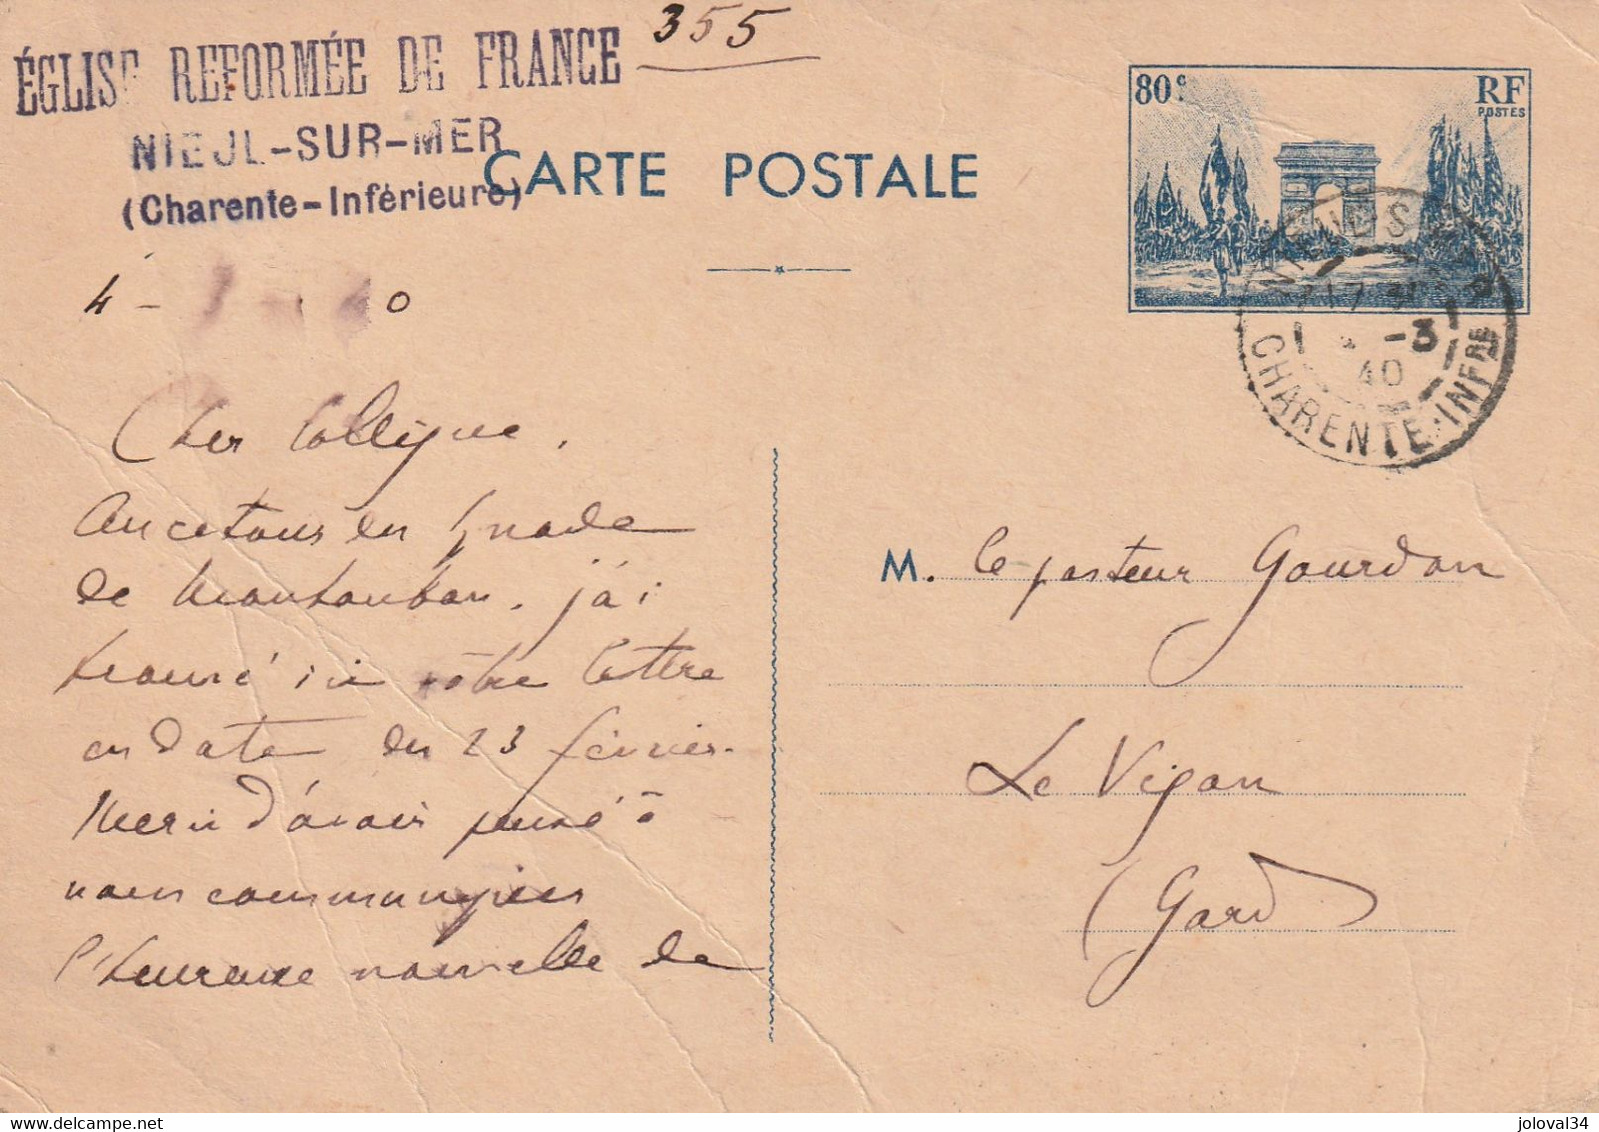 ÉGLISE REFORMÉE DE FRANCE
355
NIEUL-SUR-MER
(Charente-Inférieure)
CARTE POSTALE
80c.
RF
POSTES
4 - 40
-3
40
CHARENTE-INFRE
Cher Collègue,
de Montauban. j'ai
trouvé ici vôtre lettre
en date du 23 février.
Merci d'avoir pensé à
nous communiquer
l'heureuse nouvelle de
M. le pasteur Gourdon
Le Vigan
(Gard)
joloval34